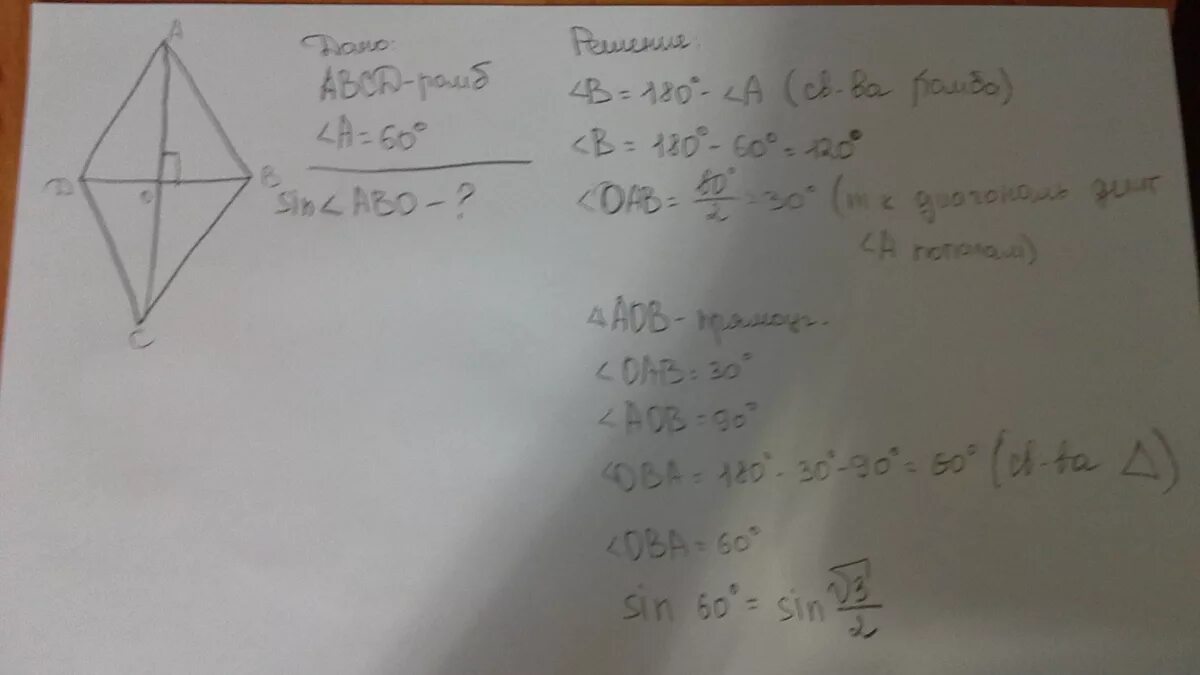 A
D
B
O
C
Дано:
ABCD-ромб
<A=60°
sin<ABO-?
Решение:
<B=180°-<A (св-ва ромба)
<B=180°-60°=120°
<OAB=60°/2=30° (т к диагональ делит
<A пополам)
△AOB-прямоуг.
<OAB=30°
<AOB=90°
<OBA=180°-30°-90°=60° (св-ва △)
<OBA=60°
sin 60°=sin √3/2